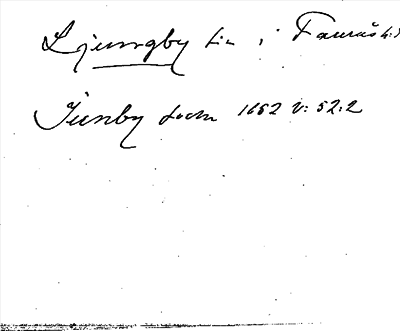 Ljungby sn i Faurås hd
Junby sochn 1652 v: 52:2